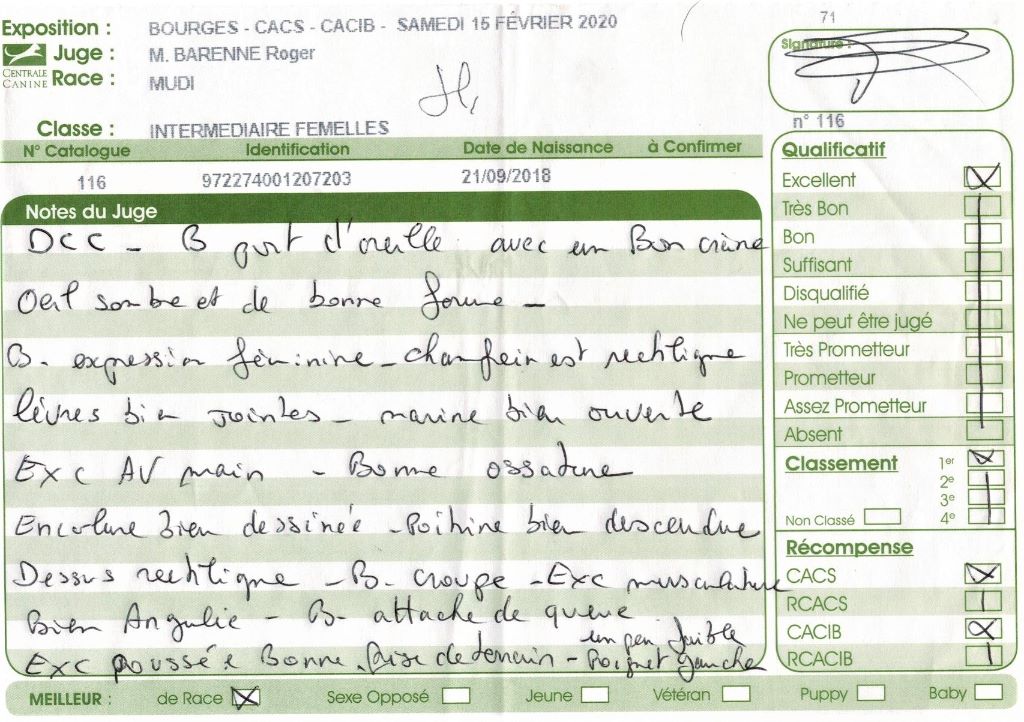 71
Exposition : BOURGES - CACS - CACIB - SAMEDI 15 FÉVRIER 2020
Signature :
Juge : M. BARENNE Roger
CENTRALE CANINE
Race : MUDI
Classe : INTERMEDIAIRE FEMELLES
n° 116
N° Catalogue Identification Date de Naissance à Confirmer
116 972274001207203 21/09/2018
Notes du Juge
DCC - B port d'oreille avec un Bon crâne
Oeil sombre et de bonne forme -
B. expression féminine - chanfrein est rectiligne
lèvres bien jointes - narine bien ouverte
Exc AV main - Bonne ossature
Encolure bien dessinée - Poitrine bien descendue
Dessus rectiligne - B. croupe - Exc musculature
Bien Angulée - B. attache de queue
Exc poussée Bonne prise de terrain - Poignet gauche
un peu faible
Qualificatif
Excellent
Très Bon
Bon
Suffisant
Disqualifié
Ne peut être jugé
Très Prometteur
Prometteur
Assez Prometteur
Absent
Classement 1er
2e
3e
Non Classé 4e
Récompense
CACS
RCACS
CACIB
RCACIB
MEILLEUR : de Race Sexe Opposé Jeune Vétéran Puppy Baby